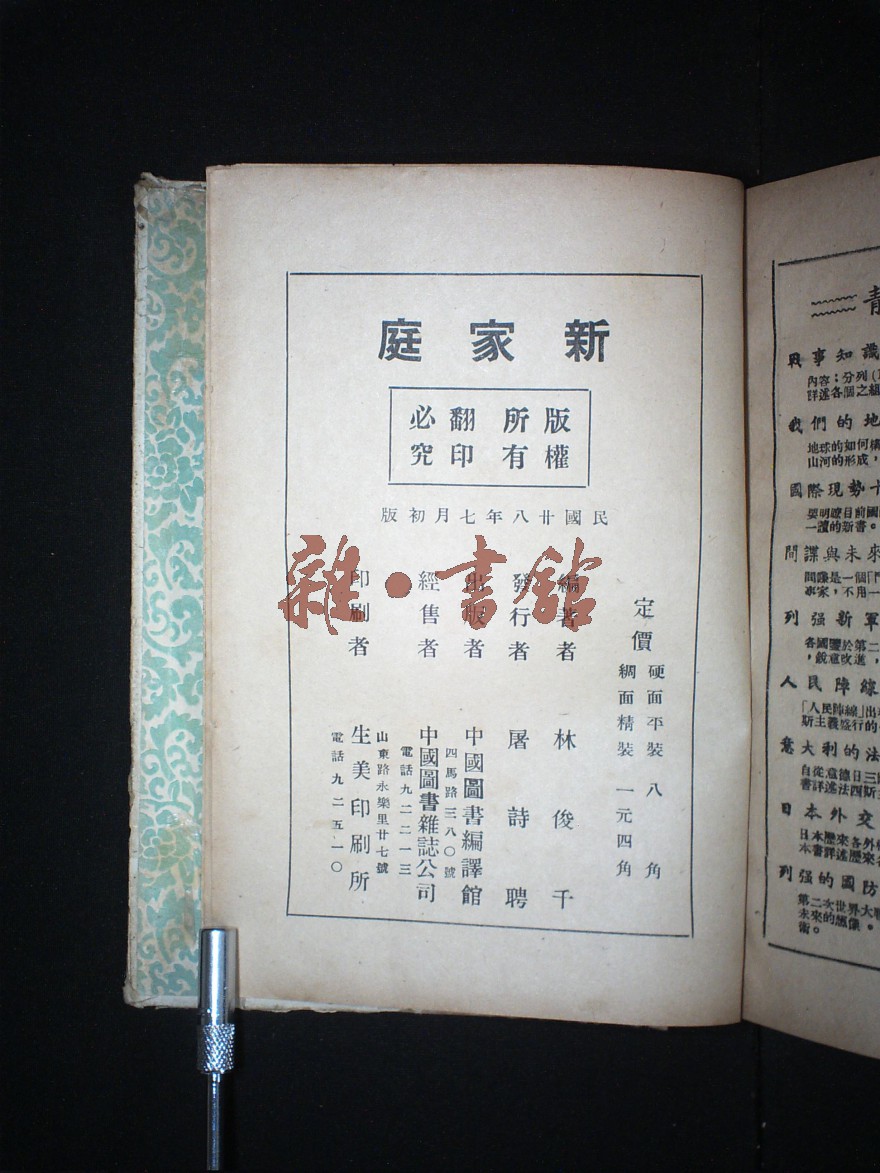 新家庭
版權所有
翻印必究
民國廿八年七月初版
定價
硬面平裝 八角
綢面精裝 一元四角
編著者 林俊千
發行者 屠詩聘
出版者 中國圖書編譯館
四馬路三八〇號
經售者 中國圖書雜誌公司
電話九二二一三
印刷者 生美印刷所
山東路永樂里廿七號
電話九二五一〇
雜·書館
戰事知識
內容:分列
詳述各個之組
我們的地
地球的如何構
山河的形成,
國際現勢十
要明瞭目前國
一讀的新書。
間諜與未來
間諜是一個「鬥
專家,不用一
列强新軍
各國鑒於第二
,銳意改進,
人民陣線
「人民陣線」出
斯主義盛行的
意大利的法
自從意德日三
書詳述法西斯
日本外交
日本歷來各外
本書詳述歷來
列强的國防
第二次世界大戰
未來的想像。
術。